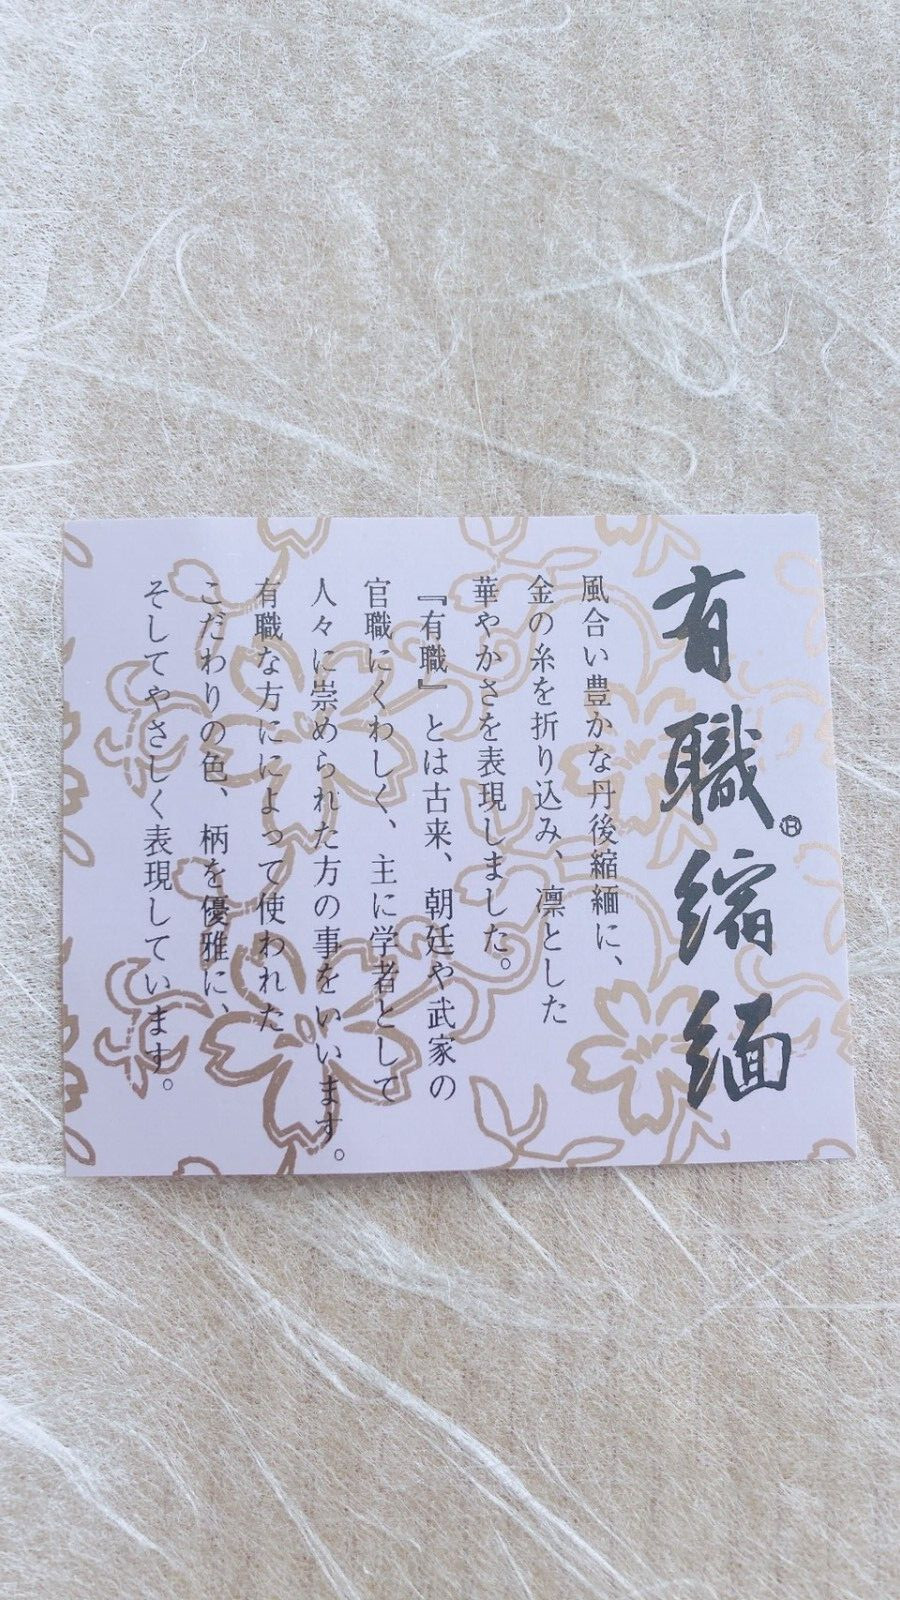 有職縮緬
風合い豊かな丹後縮緬に、
金の糸を折り込み、凛とした
華やかさを表現しました。
『有職』とは古来、朝廷や武家の
官職にくわしく、主に学者として
人々に崇められた方の事をいいます。
有職な方にによって使われた
こだわりの色、柄を優雅に、
そしてやさしく表現しています。